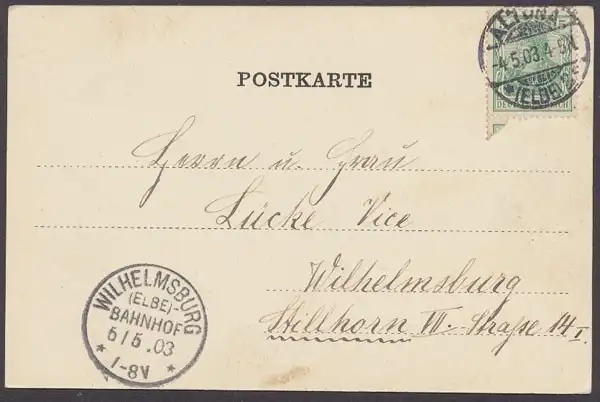 ALTONA
-4.5.03.4-5N
*(ELBE)*
POSTKARTE
Herrn u. Frau
Lücke Vice
Wilhelmsburg
Stillhorn VII. Straße 14 I.
WILHELMSBURG
(ELBE)-
BAHNHOF
5/5.03
* 1-8V *